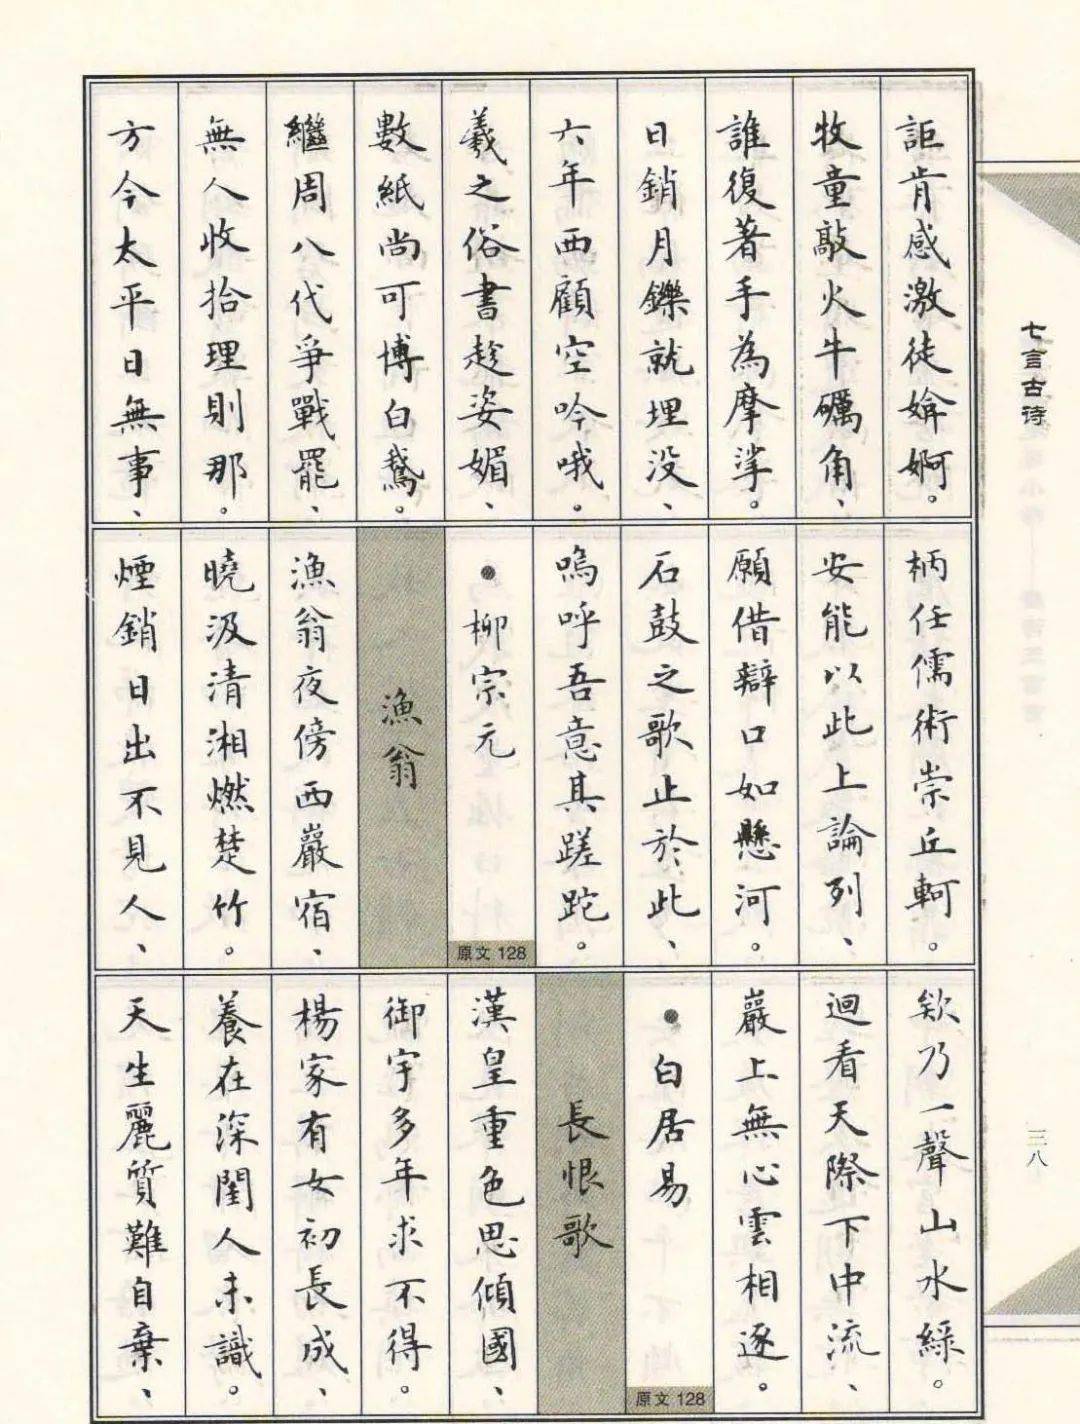 七言古诗
三八
詎肯感激徒媕婀。
牧童敲火牛礪角、
誰復著手為摩挲。
日銷月鑠就埋没、
六年西顧空吟哦。
羲之俗書趁姿媚、
數紙尚可博白鵞。
繼周八代爭戰罷、
無人收拾理則那。
方今太平日無事、
柄任儒術崇丘軻。
安能以此上論列、
願借辯口如懸河。
石鼓之歌止於此、
嗚呼吾意其蹉跎。
●柳宗元
原文 128
漁翁
漁翁夜傍西巖宿、
曉汲清湘燃楚竹。
煙銷日出不見人、
欸乃一聲山水綠。
迴看天際下中流、
巖上無心雲相逐。
●白居易
原文 128
長恨歌
漢皇重色思傾國、
御宇多年求不得。
楊家有女初長成、
養在深閨人未識。
天生麗質難自棄、